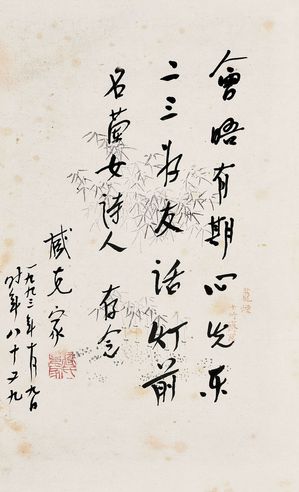 會晤有期心先乐
二三好友话灯前
蘭女詩人 存念
臧克家
一九九三年十月九日
时年八十又九